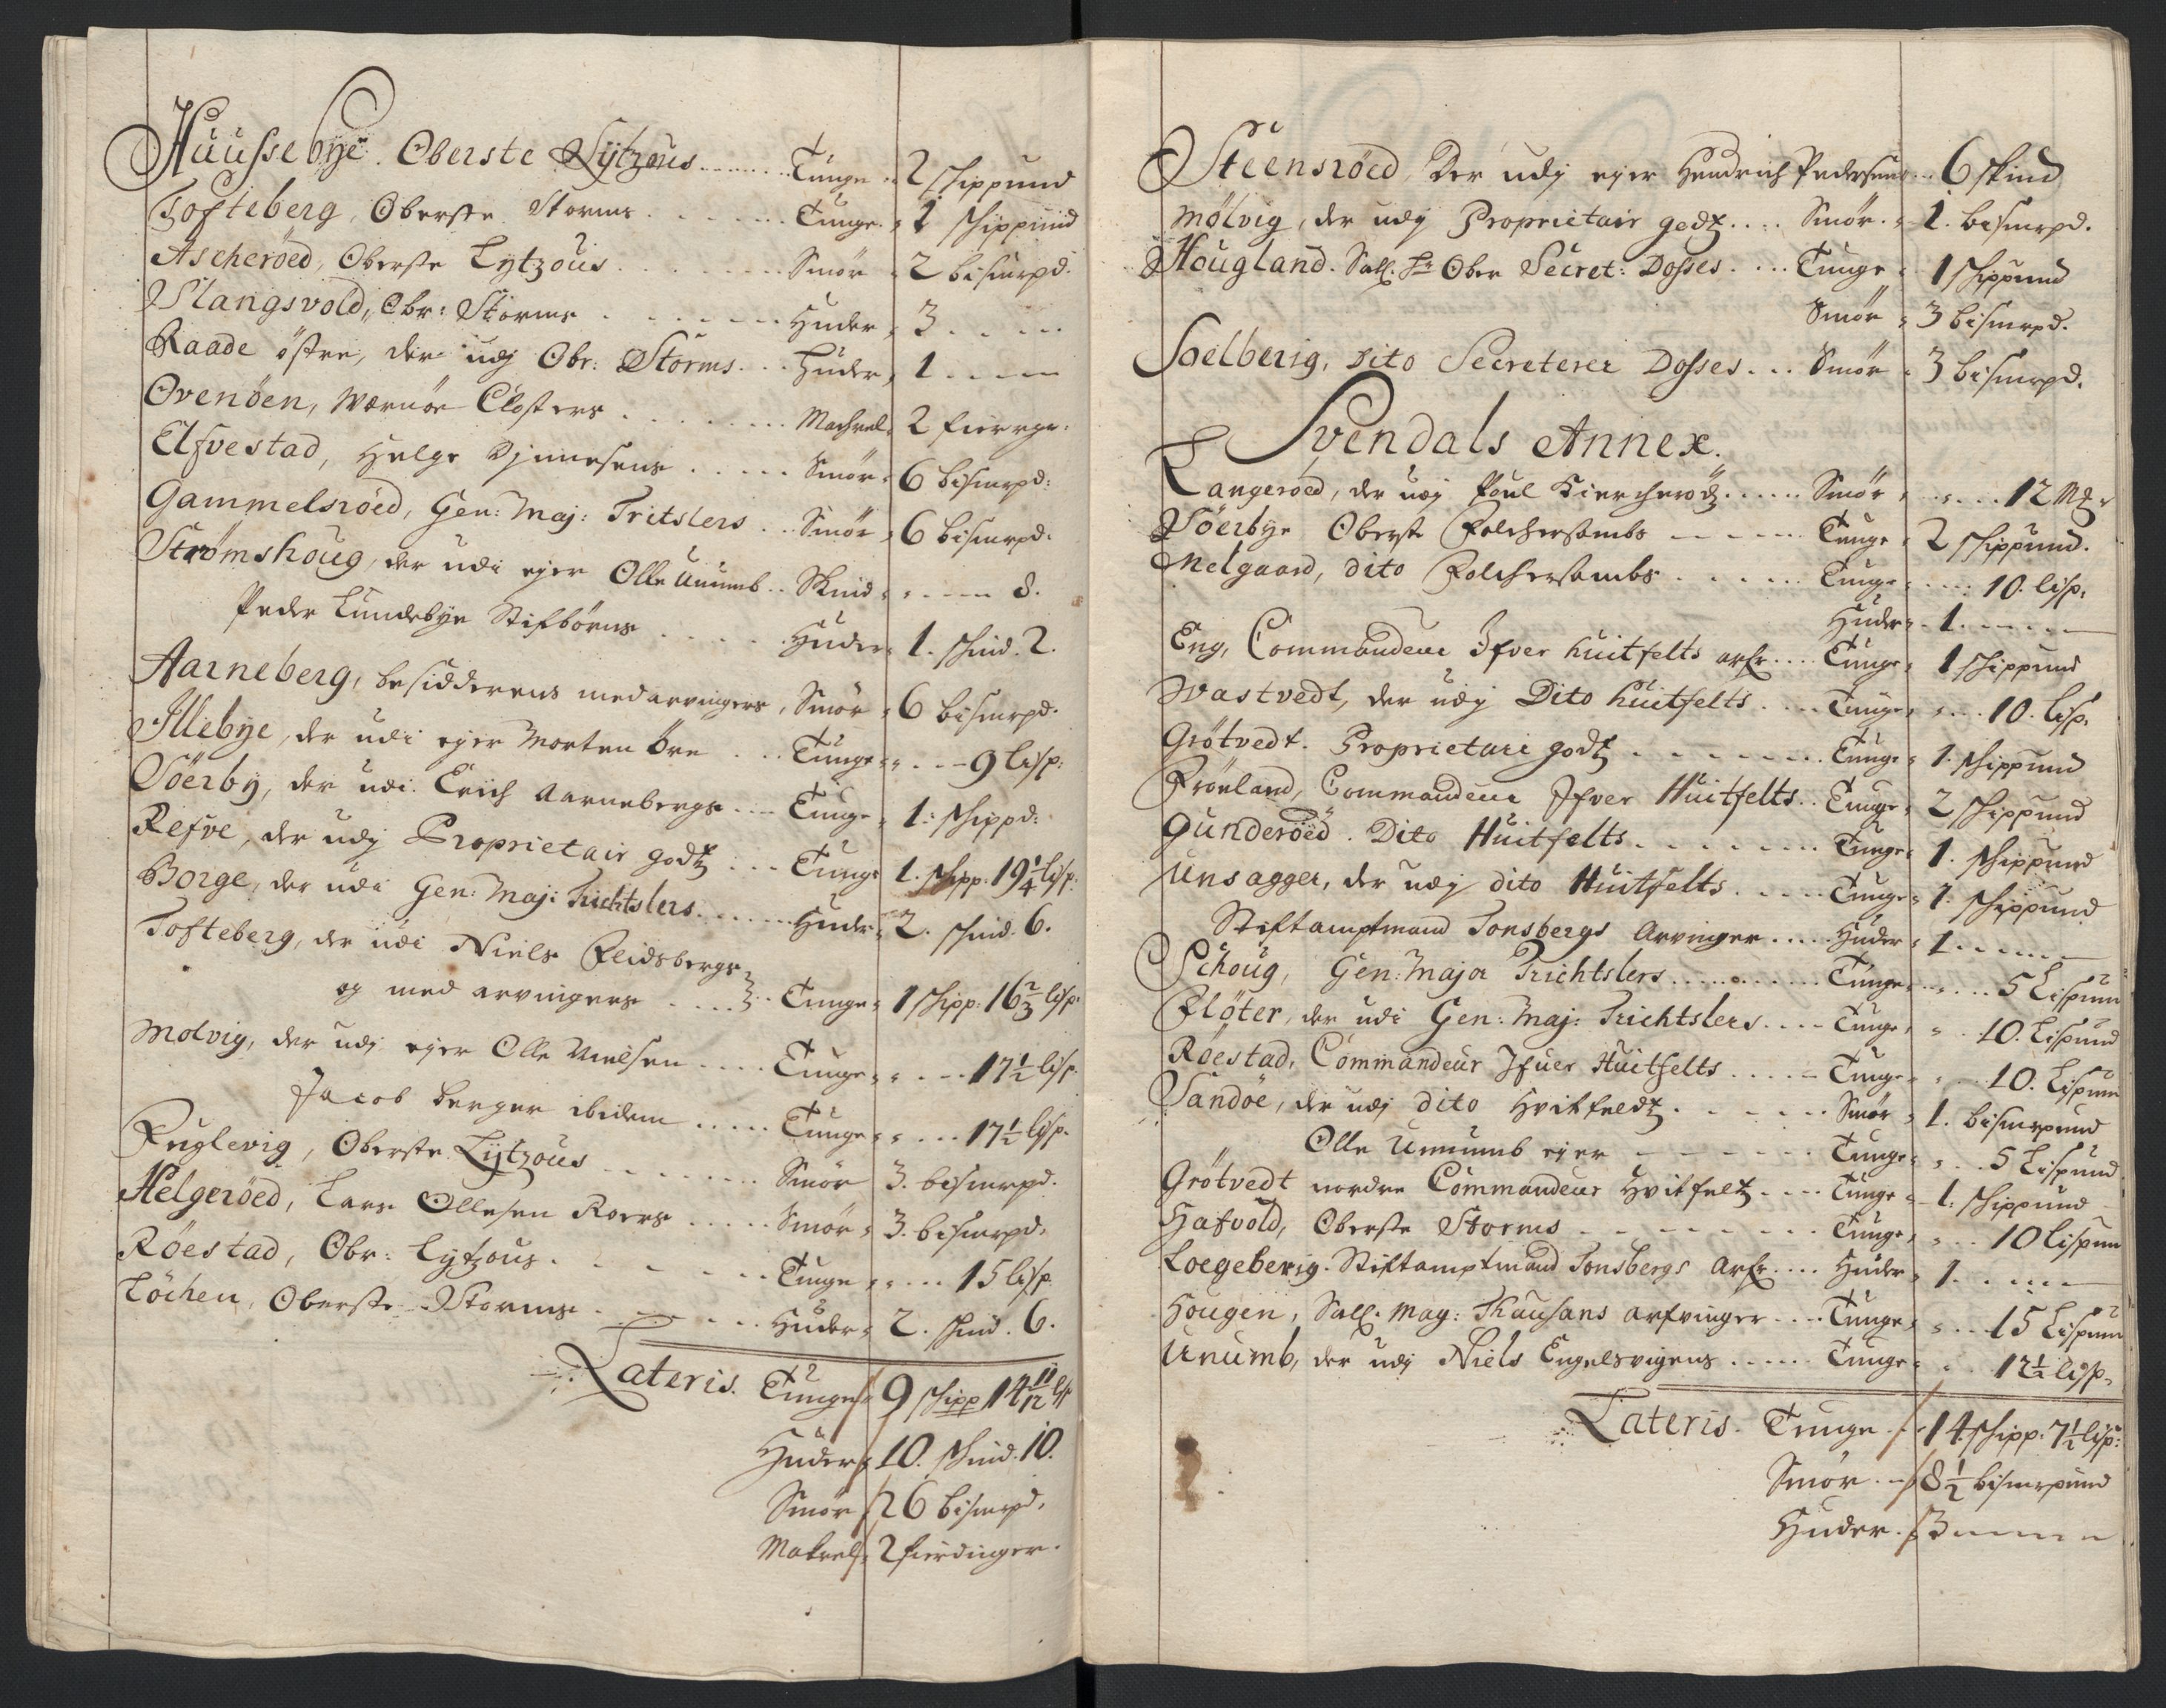 Huussebye. Oberste Lytzous ...... Tunge .. 2 schippund
Tofteberg, Oberste Storms ...... Tunge . 1 schippund
Ascheröed, Oberste Lytzous ...... Smör 2 bismrpd.
Slangsvold, Obr: Storms ...... Huder 3 ....
Raade östre, der udj Obr: Storms ... Huder, 1 ....
Ovenöen, Wærnöe Closters ...... Machrel. 2 fierrge.
Elfvestad, Helge Gjunesens ..... Smör. 6 bismrpd:
Gammelsröed, Gen: Maj: Tritslers .. Smör . 6 bismrpd.
Strömshoug, der udi ejer Olle Unumb .. Skind .... 8.
Peder Lundebye Stifbörns ...... Huder 1. skind. 2.
Aarneberg, besidderens medarvingers, Smör . 6 bismrpd.
Illebye, der udi ejer Morten Öre ... Tunge .... 9 lisp:
Söerby, der udi Erich Aarnebergs ... Tunge . 1. schippd:
Refve, der udj Proprietair godtz ... Tunge 1. schipp. 19 1/4 lisp.
Borge, der udi Gen: Maj: Trichtslers ...... Huder 2. skind. 6.
Tofteberg, der udi Niels Flidsbergs
og med arvingers .... Tunge 1 schipp. 16 2/3 lisp.
Molvig, der udj ejer Olle Nielsen .... Tunge .... 17 1/2 lisp.
Jacob Berger ibidem ..... Tunge .... 17 1/2 lisp.
Fuglevig, Oberste Lytzous ...... Smör 3. bismrpd.
Helgeröed, Lars Ollesen Roers ..... Smör . 3. bismrpd.
Röestad, Obr: Lytzous ...... Tunge .... 15 lisp.
Löchen, Oberste Storms ...... Huder . 2. skind. 6.
Lateris. Tunge 9 schipp 14 11/12 lisp
Huder 10. skind. 10.
Smör 26 bismrpd.
Makrel. 2 fierdinger.
Steensröed Der udj ejer Hendrich Pedersen ... 6 skind
Mölvig, der udj Proprietair godtz .... Smör . 1. bismrpd.
Hougland. Sall. Hr Ober Secret: Dosses .... Tunge . 1 schippund
Smör . 3 bismrpd.
Soelberig, Dito Secreterer Dosses ... Smör . 3 bismrpd.
Svendals Annex.
Langeröed, der udj Poul Kiercheröds ...... Smör .... 12 Mk
Söerbye Oberste Folchersambs ...... Tunge . 2 schippund.
Melgaard, dito Folchersambs ...... Tunge .... 10. lisp.
Huder . 1. ....
Eng, Commandeur Ifver Huitfelts arfr .... Tunge . 1 schippund
Wastvedt, der udj Dito Huitfelts .... Tunge .... 10. lisp.
Grötvedt. Proprietari godtz ...... Tunge . 1. schippund
Fröuland, Commandeur Ifver Huitfelts .. Tunge . 2 schippund
Gunderöed. Dito Huitfelts ...... Tunge . 1. schippund
Unsagger, der udj dito Huitfelts ..... Tunge . 1. schippund
Stiftamptmand Tonsbergs Arvinger .... Huder . 1 ....
Schoug, Gen: Major Trichtslers ...... Tunge .... 5 Lispun
Flöter, der udi Gen: Maj: Trichtslers .... Tunge . 10. Lispund
Röestad, Commandeur Ifuer Huitfelts ..... Tunge .. 10. Lispun
Sandöe, der udj dito Hvitfeldtz ...... Smör . 1. bismrpund
Olle Unnumb ejer ...... Tunge ... 5 Lispund
Grötvedt nordre Commandeur Hvitfeltz .... Tunge . 1. schippund
Hafvold, Oberste Storms ...... Tunge ... 10 Lispun
Loegeberig. Stiftamptmand Tonsbergs Arfr .... Huder . 1. ....
Hougen, Sall. Mag: Thausans arfvinger .... Tunge ... 15 Lispun
Unumb, der udj Niels Engelsvigens ..... Tunge .. 12 1/2 lisp.
Lateris. Tunge 14. schipp. 7 1/2 lisp:
Smör 8 1/2 bismrpund
Huder. 3 ....